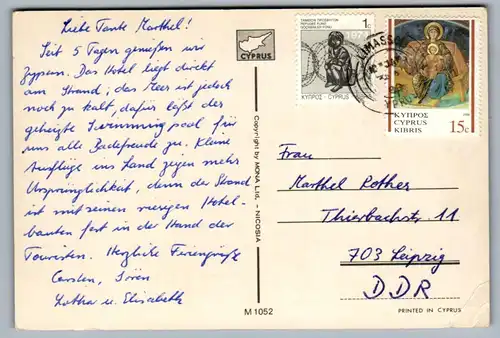 Liebe Tante Marthel!
Seit 5 Tagen genießen wir
Zypern. Das Hotel liegt direkt
am Strand; das Meer ist jedoch
noch zu kalt, dafür läßt der
geheizte Swimmingpool für
uns alle Badefreude zu. Kleine
Ausflüge ins Land zeigen mehr
Ursprünglichkeit, denn der Strand
ist mit seinen riesigen Hotel-
bauten fest in der Hand der
Touristen. Herzliche Feriengrüße
Carsten, Sören
Lothar u. Elisabeth
CYPRUS
Copyright by MONA Ltd. - NICOSIA
M 1052
1c
ΚΥΠΡΟΣ · CYPRUS
MASSO
ΚΥΠΡΟΣ
CYPRUS
KIBRIS
15c
Frau
Marthel Rother
Thierbachstr. 11
703 Leipzig
DDR
PRINTED IN CYPRUS